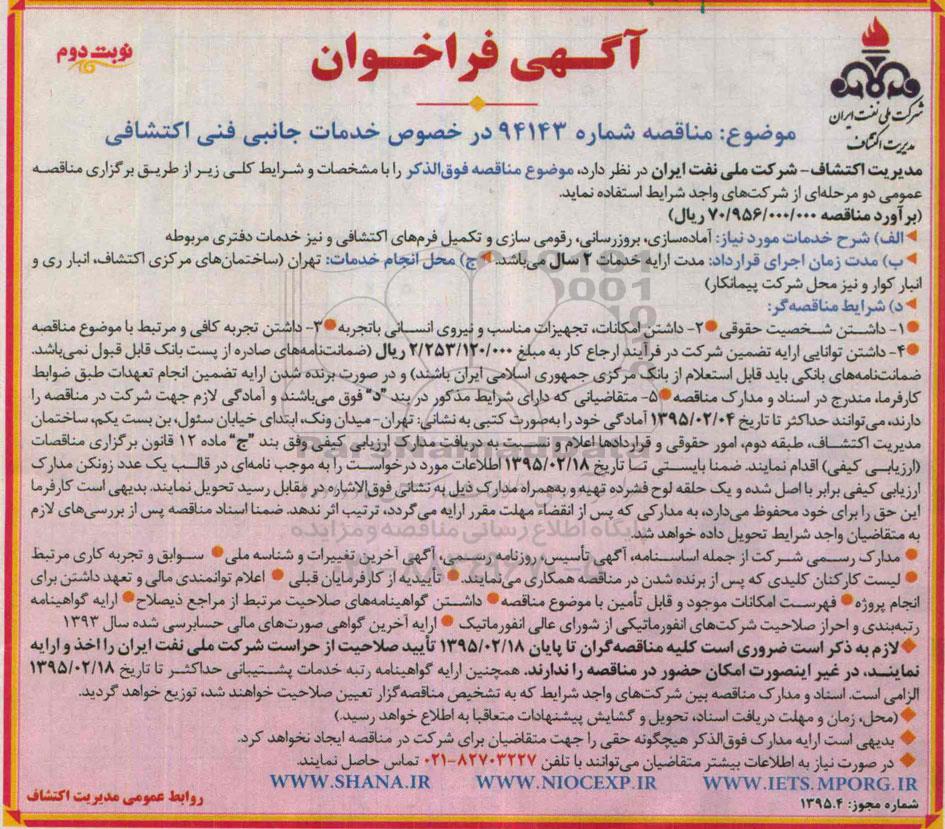 نوبت دوم
آگهی فراخوان
شرکت ملی نفت ایران
مدیریت اکتشاف
موضوع: مناقصه شماره ۹۴۱۴۳ در خصوص خدمات جانبی فنی اکتشافی
مدیریت اکتشاف- شرکت ملی نفت ایران در نظر دارد، موضوع مناقصه فوق‌الذکر را با مشخصات و شرایط کلی زیر از طریق برگزاری مناقصه
عمومی دو مرحله‌ای از شرکت‌های واجد شرایط استفاده نماید.
(برآورد مناقصه ۷۰/۹۵۶/۰۰۰/۰۰۰ ریال)
الف) شرح خدمات مورد نیاز: آماده‌سازی، بروزرسانی، رقومی سازی و تکمیل فرم‌های اکتشافی و نیز خدمات دفتری مربوطه
ب) مدت زمان اجرای قرارداد: مدت ارایه خدمات ۲ سال می‌باشد. ج) محل انجام خدمات: تهران (ساختمان‌های مرکزی اکتشاف، انبار ری و
انبار کوار و نیز محل شرکت پیمانکار)
د) شرایط مناقصه‌گر:
۱- داشتن شخصیت حقوقی ۲- داشتن امکانات، تجهیزات مناسب و نیروی انسانی باتجربه ۳- داشتن تجربه کافی و مرتبط با موضوع مناقصه
۴- داشتن توانایی ارایه تضمین شرکت در فرآیند ارجاع کار به مبلغ ۲/۲۵۳/۱۲۰/۰۰۰ ریال (ضمانت‌نامه‌های صادره از پست بانک قابل قبول نمی‌باشد.
ضمانت‌نامه‌های بانکی باید قابل استعلام از بانک مرکزی جمهوری اسلامی ایران باشند) و در صورت برنده شدن ارایه تضمین انجام تعهدات طبق ضوابط
کارفرما، مندرج در اسناد و مدارک مناقصه ۵- متقاضیانی که دارای شرایط مذکور در بند "د" فوق می‌باشند و آمادگی لازم جهت شرکت در مناقصه را
دارند، می‌توانند حداکثر تا تاریخ ۱۳۹۵/۰۲/۰۴ آمادگی خود را به‌صورت کتبی به نشانی: تهران- میدان ونک، ابتدای خیابان سئول، بن بست یکم، ساختمان
مدیریت اکتشاف، طبقه دوم، امور حقوقی و قراردادها اعلام و نسبت به دریافت مدارک ارزیابی کیفی وفق بند "ج" ماده ۱۲ قانون برگزاری مناقصات
(ارزیابی کیفی) اقدام نمایند. ضمنا بایستی تا تاریخ ۱۳۹۵/۰۲/۱۸ اطلاعات مورد درخواست را به موجب نامه‌ای در قالب یک عدد زونکن مدارک
ارزیابی کیفی برابر با اصل شده و یک حلقه لوح فشرده تهیه و به‌همراه مدارک ذیل به نشانی فوق الاشاره در مقابل رسید تحویل نمایند. بدیهی است کارفرما
این حق را برای خود محفوظ می‌دارد، به مدارکی که پس از انقضاء مهلت مقرر ارایه می‌گردد، ترتیب اثر ندهد. ضمنا اسناد مناقصه پس از بررسی‌های لازم
به متقاضیان واجد شرایط تحویل داده خواهد شد.
مدارک رسمی شرکت از جمله اساسنامه، آگهی تأسیس، روزنامه رسمی، آگهی آخرین تغییرات و شناسه ملی سوابق و تجربه کاری مرتبط
لیست کارکنان کلیدی که پس از برنده شدن در مناقصه همکاری می‌نمایند. تأییدیه از کارفرمایان قبلی اعلام توانمندی مالی و تعهد داشتن برای
انجام پروژه فهرست امکانات موجود و قابل تأمین با موضوع مناقصه داشتن گواهینامه‌های صلاحیت مرتبط از مراجع ذیصلاح ارایه گواهینامه
رتبه‌بندی و احراز صلاحیت شرکت‌های انفورماتیکی از شورای عالی انفورماتیک ارایه آخرین گواهی صورت‌های مالی حسابرسی شده سال ۱۳۹۳
لازم به ذکر است ضروری است کلیه مناقصه‌گران تا پایان ۱۳۹۵/۰۲/۱۸ تأیید صلاحیت از حراست شرکت ملی نفت ایران را اخذ و ارایه
نمایند، در غیر اینصورت امکان حضور در مناقصه را ندارند. همچنین ارایه گواهینامه رتبه خدمات پشتیبانی حداکثر تا تاریخ ۱۳۹۵/۰۲/۱۸
الزامی است. اسناد و مدارک مناقصه بین شرکت‌های واجد شرایط که به تشخیص مناقصه‌گزار تعیین صلاحیت خواهند شد، توزیع خواهد گردید.
(محل، زمان و مهلت دریافت اسناد، تحویل و گشایش پیشنهادات متعاقبا به اطلاع خواهد رسید.)
بدیهی است ارایه مدارک فوق‌الذکر هیچگونه حقی را جهت متقاضیان برای شرکت در مناقصه ایجاد نخواهد کرد.
در صورت نیاز به اطلاعات بیشتر متقاضیان می‌توانند با تلفن ۸۲۷۰۳۲۲۷-۰۲۱ تماس حاصل نمایند.
WWW.SHANA.IR WWW.NIOCEXP.IR WWW.IETS.MPORG.IR
روابط عمومی مدیریت اکتشاف
شماره مجوز: ۱۳۹۵.۴
ParsNamadData
پایگاه اطلاع رسانی مناقصه و مزایده